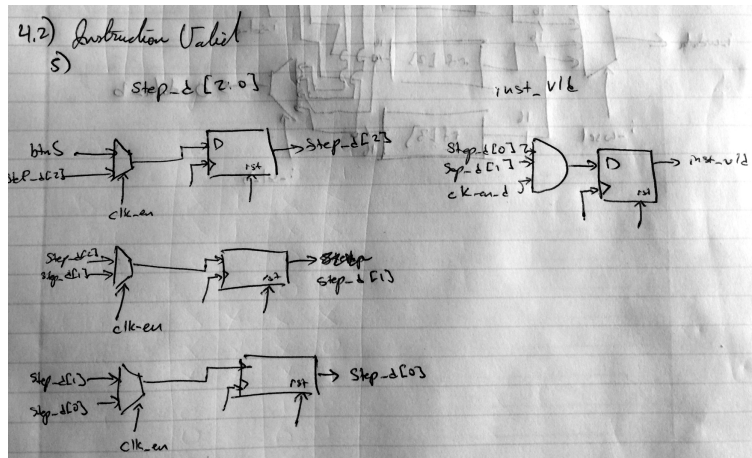 4.2) Instruction Valid
5)
step_d[2:0]
inst_vld
btnS
step_d[2]
step_d[2]
clk_en
rst
D
step_d[0]
step_d[1]
clk_en_d
D
rst
inst_vld
step_d[2]
step_d[1]
clk-en
rst
step_d[1]
step_d[1]
step_d[0]
clk_en
rst
step_d[0]